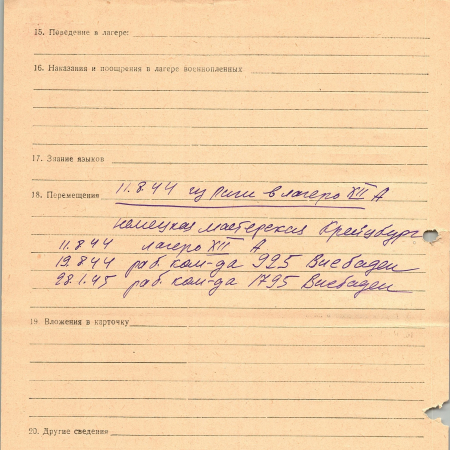 15. Поведение в лагере:
16. Наказания и поощрения в лагере военнопленных
17. Знание языков
18. Перемещение 11.8.44 из Риги в лагерь XII А
немецкая мастерская Крейцбург
11.8.44 лагерь XII А
19.8.44 раб. ком-да 925 Висбаден
28.1.45 раб. ком-да 1795 Висбаден
19. Вложения в карточку
20. Другие сведения